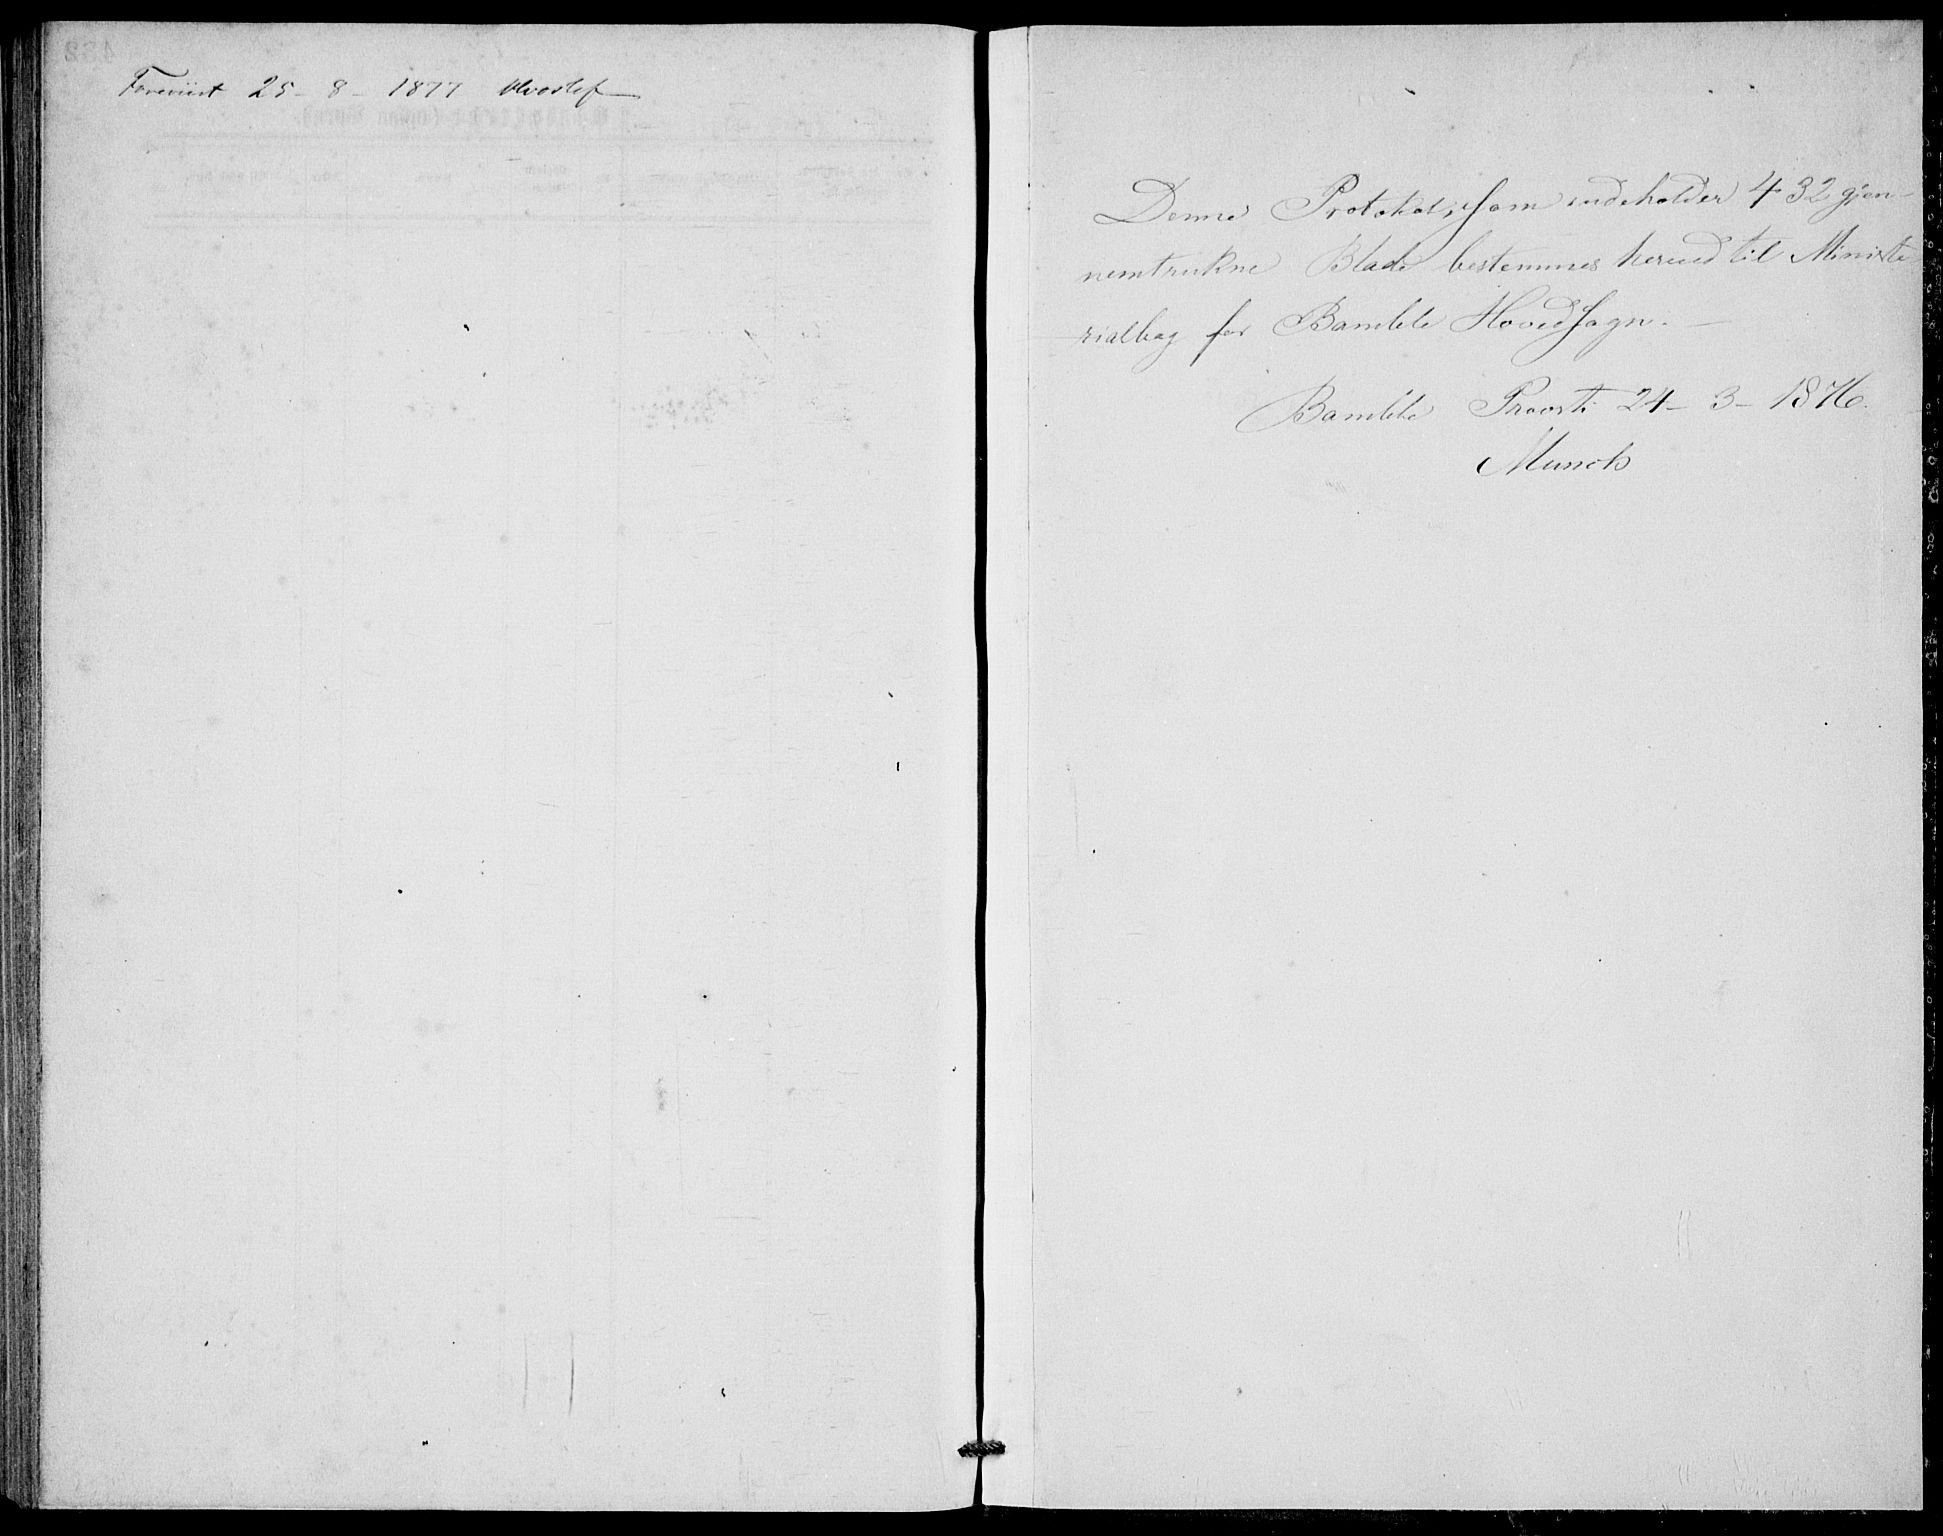 Foreviist 25 - 8 - 1877 Hvoslef
Denne Protokol, som indeholder 432 gjen-
nemtrukne Blade bestemmes herved til Ministe
rialbog for Bamble Hovedsogn. —
Bamble Provsti 24 - 3 - 1876.
Munch